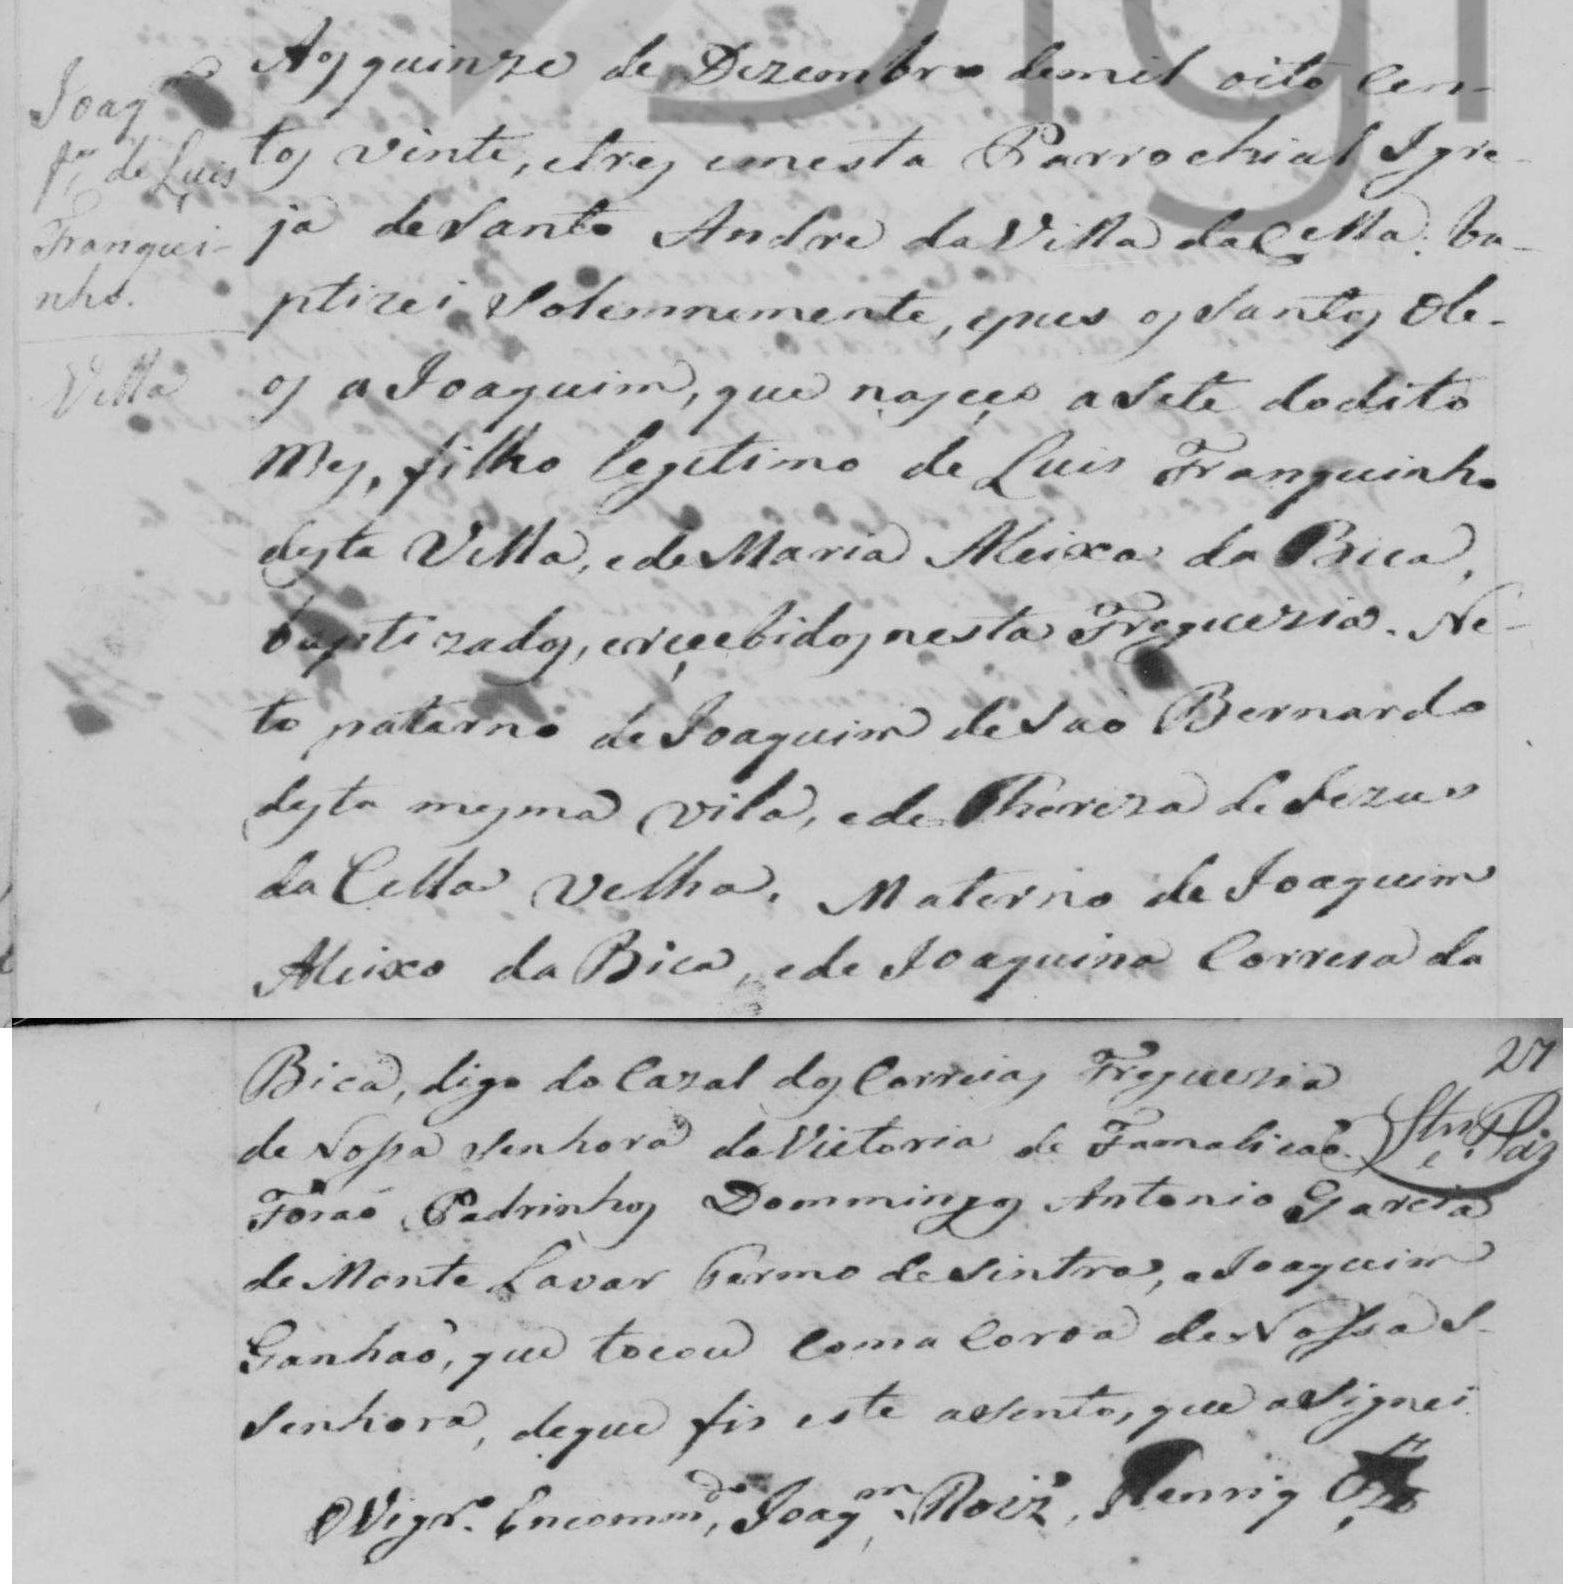 Joaq.
f.º de Luis
Franqui-
nho.
Villa
Aos quinze de Dezembro demil oito cen-
tos vinte, etres enesta Parrochial Igre-
ja deSanto Andre daVilla daCella: ba-
ptizei Solemnemente, epus os Santos Ole-
os a Joaquim, que nasçeo aSete dodito
Mes, filho legitimo de Luis Franquinho
desta Villa, edeMaria Aleixa da Bica,
baptizados, ereçebidos nesta Freguezia. Ne-
to paterno de Joaquim deSaõ Bernardo
desta mesma vila, ede Thereza deJezus
da Cella Velha. Materno de Joaquim
Aleixo da Bica, ede Joaquina Correia da
27
Bica, digo do Cazal dos Correias Freguezia
de Nossa Senhora daVictoria de Famalicaõ.
Foraõ Padrinhos Dommingos Antonio Garcia
de Monte Lavar termo deSintra, eJoaquim
Ganhaõ, que tocou comaCoroa deNossa S-
Senhora, deque fis este aSento, que aSignei
OVigr.º Encomm.do Joaq.m Roiz. Henriq